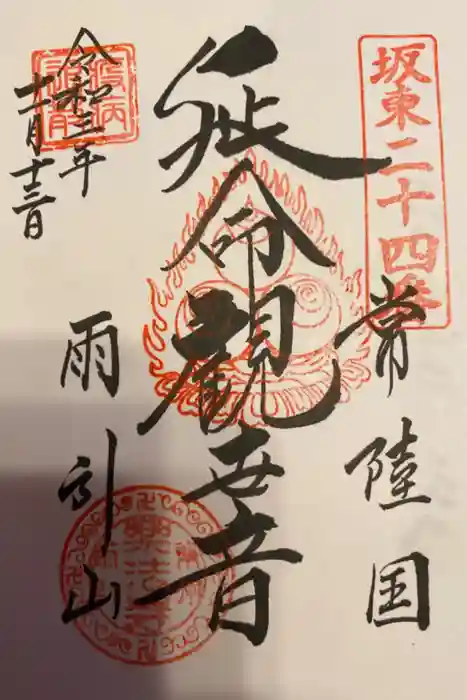 坂東二十四番
常陸国
延命観世音
雨引山
令和三年
十一月十三日